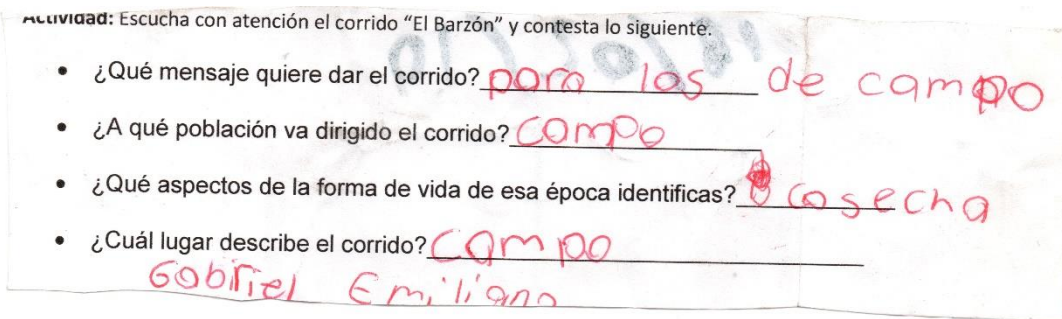 Actividad: Escucha con atención el corrido “El Barzón” y contesta lo siguiente.
• ¿Qué mensaje quiere dar el corrido? para los de campo
• ¿A qué población va dirigido el corrido? campo
• ¿Qué aspectos de la forma de vida de esa época identificas? cosecha
• ¿Cuál lugar describe el corrido? campo
Gabriel Emiliano